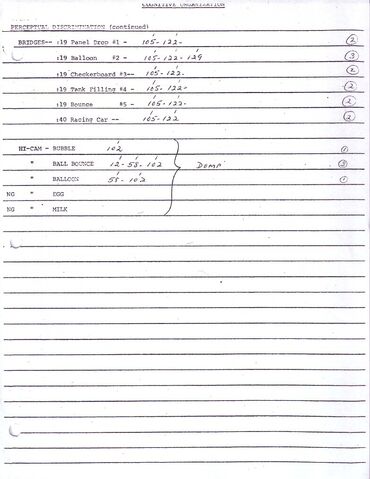 COGNITIVE ORGANIZATION
PERCEPTUAL DISCRIMINATION (continued)
BRIDGES-- :19 Panel Drop #1 - 105- 122- 2
:19 Balloon #2 - 105- 122- 129 3
:19 Checkerboard #3-- 105- 122- 2
:19 Tank Filling #4 - 105- 122- 2
:19 Bounce #5 - 105- 122- 2
:40 Racing Car -- 105- 122 2
HI-CAM - BUBBLE 102 1
" BALL BOUNCE 12- 58- 102 3
" BALLOON 58- 102
NG " EGG
NG " MILK